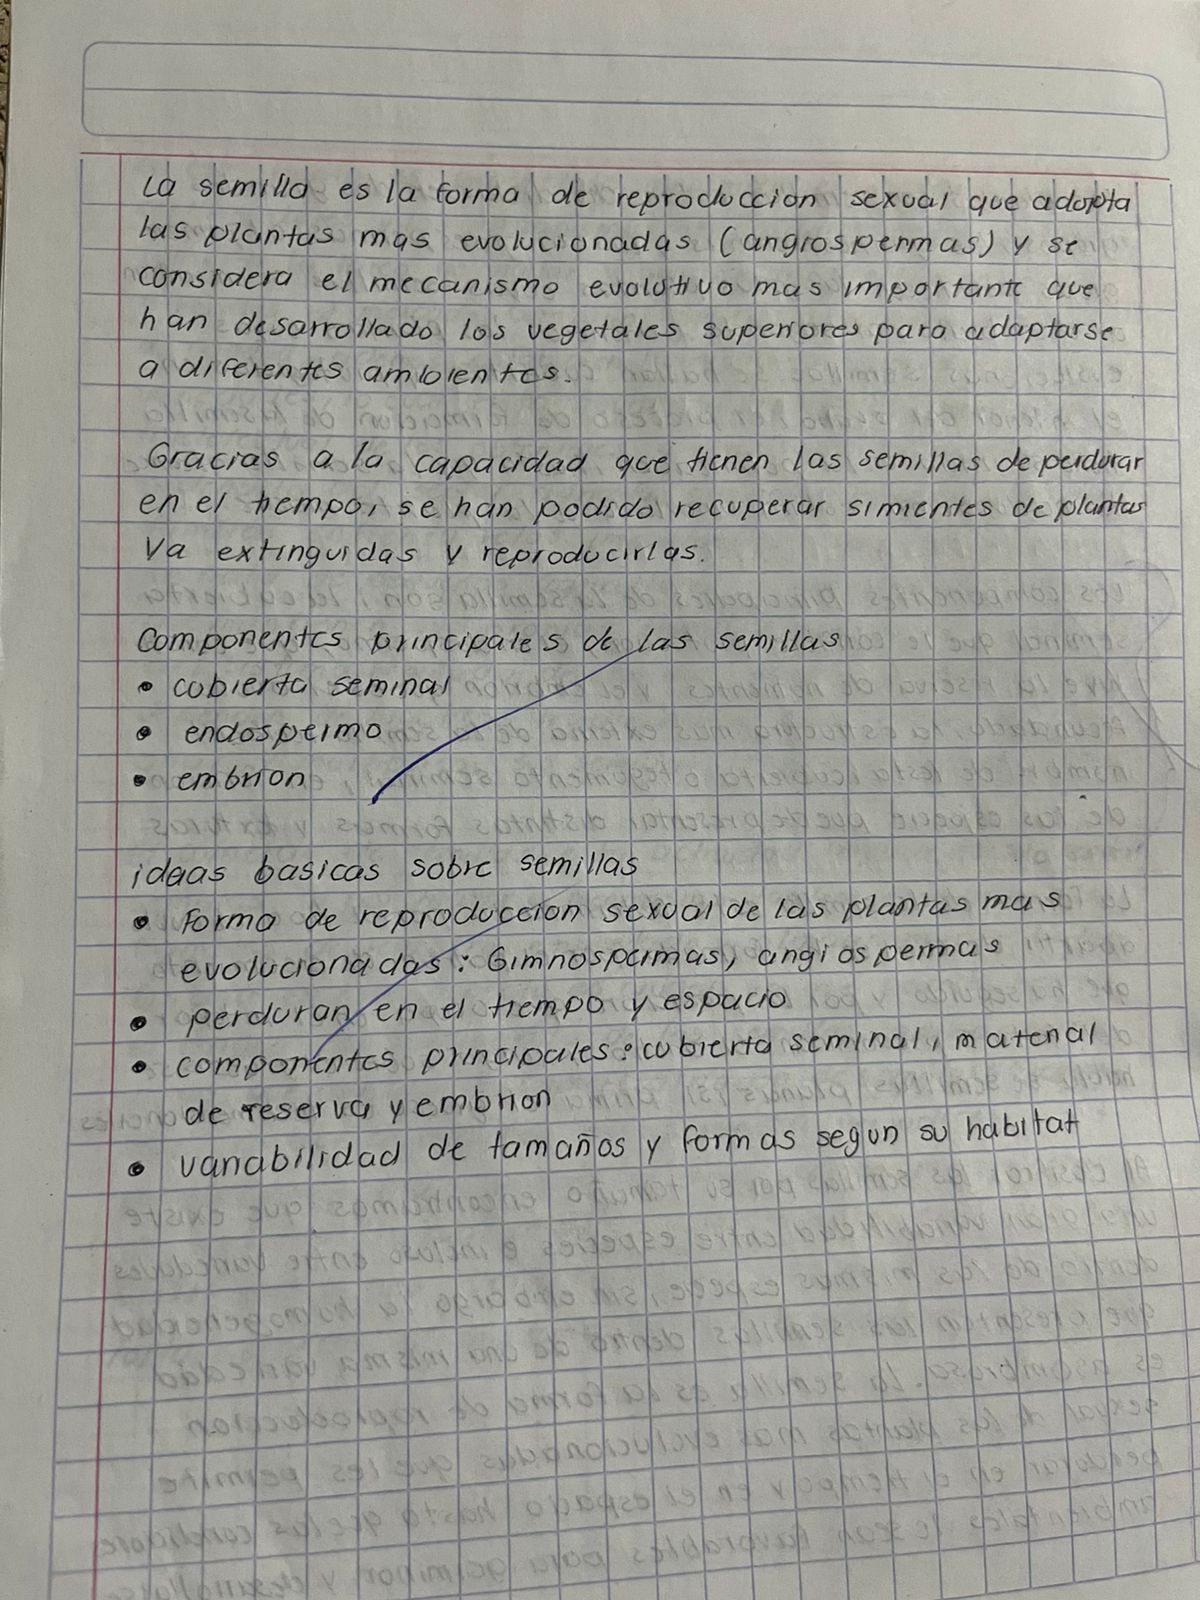 La semilla es la forma de reproduccion sexual que adopta
las plantas mas evolucionadas (angrospermas) y se
considera el mecanismo evolutivo mas importante que
han desarrollado los vegetales superiores para adaptarse
a diferentes ambientes.
Gracias a la capacidad que tienen las semillas de perdurar
en el tiempo, se han podido recuperar simientes de plantas
Va extinguidas y reproducirlas.
Componentes principales de las semillas
• cubierta seminal
• endospermo
• embrion
ideas basicas sobre semillas
• Forma de reproduccion sexual de las plantas mas
evolucionadas: Gimnospermas, angiospermas
• perduran en el tiempo y espacio
• componentes principales: cubierta seminal, material
de reserva y embrion
• variabilidad de tamaños y formas segun su habitat